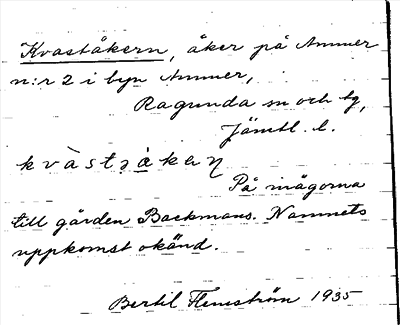 Kvaståkern, åker på Ammer
n:r 2 i byn Ammer,
Ragunda sn och tg,
Jämtl. l.
På inägorna
till gården Backmans. Namnets
uppkomst okänd.
Bertil Flemström 1935